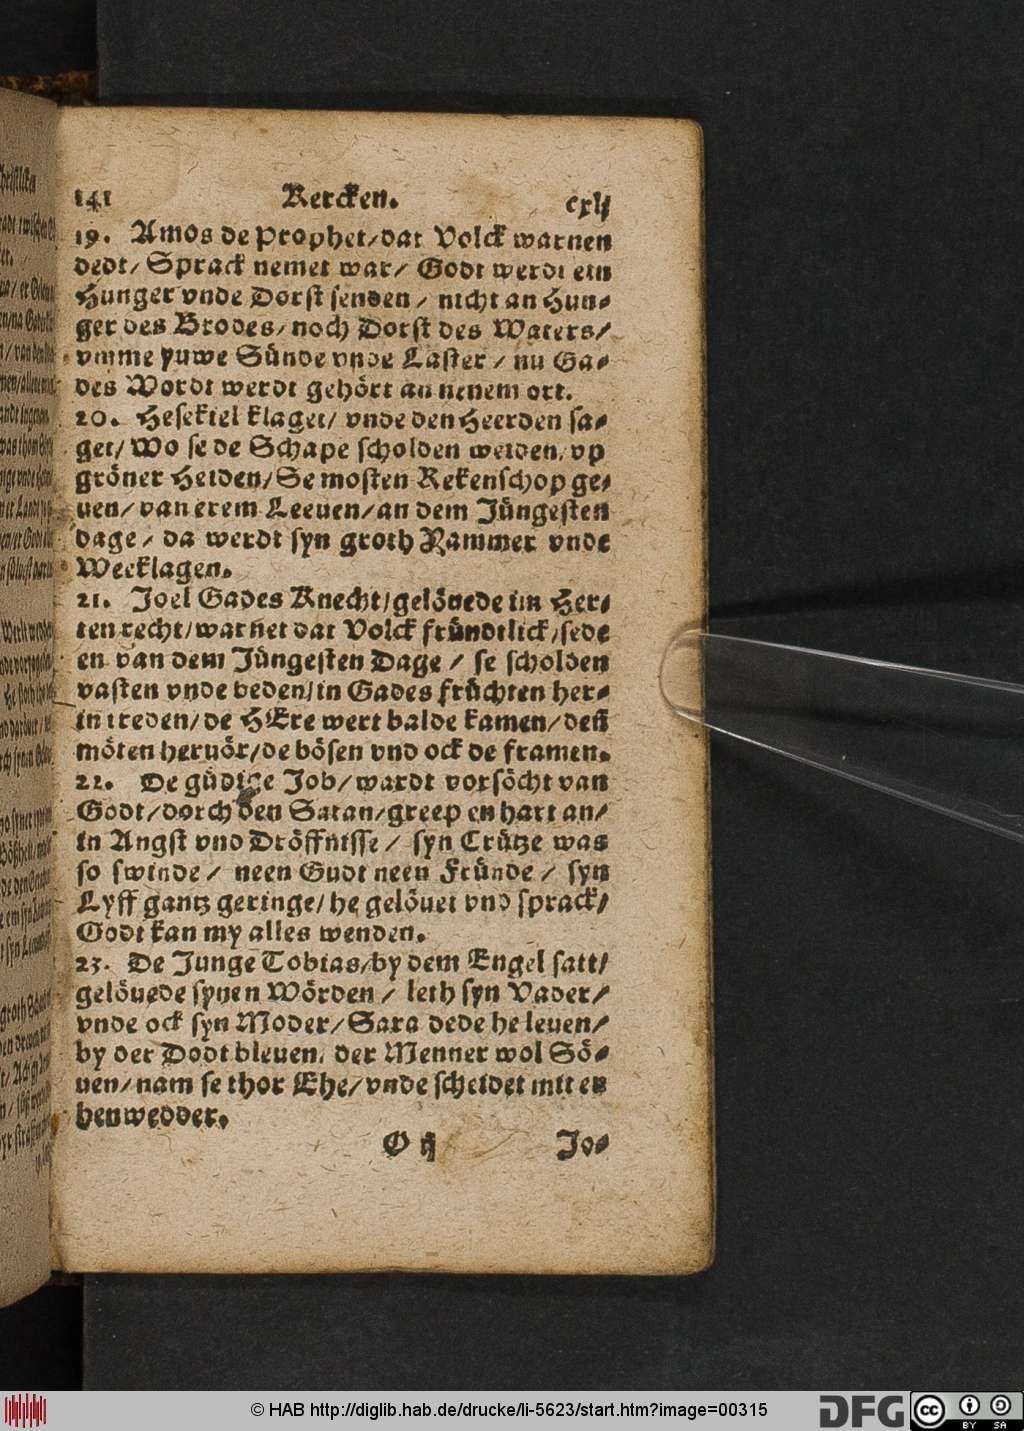 141 Kercken. cxlj
19. Amos de Prophet/dat Volck warnen
dedt/ Sprack nemet war/ Godt werdt ein
Hunger vnde Dorst senden/ nicht an Hun-
ger des Brodes/noch Dorst des Waters/
vmme yuwe Sünde vnde Laster/ nu Ga-
des Wordt werdt gehört an nenem ort.
20. Hesekiel klaget/ vnde den Heerden sa-
get/ Wo se de Schape scholden weiden/ vp
gröner Heiden/ Se mosten Rekenschop ge-
uen/ van erem Leeuen/an dem Jüngesten
dage/ da werdt syn groth Jammer vnde
Weeklagen.
21. Joel Gades Knecht/gelöuede im Her-
ten recht/warnet dat Volck fründtlick/sede
en van dem Jüngesten Dage/ se scholden
vasten vnde beden/in Gades früchten her-
in treden/de HEre wert balde kamen/den
möten heruör/de bösen vnd ock de framen.
22. De güdige Job/wardt vorsöcht van
Godt/dorch den Satan/greep en hart an/
in Angst vnd Dröffnisse/ syn Crütze was
so swinde/ neen Gudt neen Fründe/ syn
Lyff gantz geringe/he gelöuet vnd sprack/
Godt kan my alles wenden.
23. De Junge Tobias/by dem Engel satt/
gelöuede synen Wörden/ leth syn Vader/
vnde ock syn Moder/Sara dede he leuen/
by der Dodt bleuen/ der Menner wol Sö-
uen/nam se thor Ehe/vnde scheidet mit en
hen wedder.
O ij Jo-
© HAB http://diglib.hab.de/drucke/li-5623/start.htm?image=00315
DFG
cc BY SA